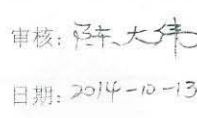 审核：陈大伟
日期：2014-10-13